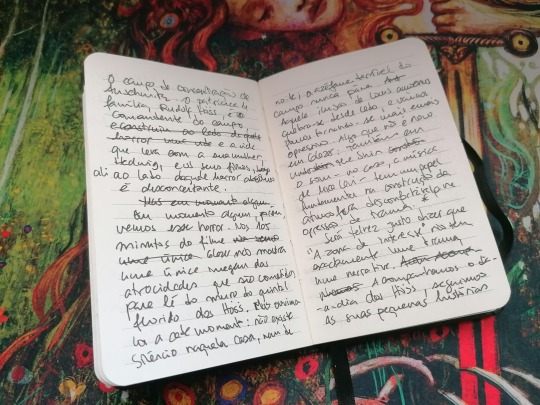 O campo de concentração de
Auschwitz. O patriarca da
família, Rudolf Höss, é o
comandante do campo
e construiu ao lado daquele
horror uma vida e a vida
que leva com a sua mulher,
Hedwig, e os seus filhos, logo
ali ao lado daquele horror absoluto
é desconcertante.
Mas em momento algum
Em momento algum, porém,
vemos esse horror. Nos 105
minutos do filme não vemos
uma única Glazer não mostra
uma única imagem das
atrocidades que são cometidas
para lá do muro do quintal
florido dos Höss. Mas ouvimo-
-los a cada momento: não existe
silêncio naquela casa, nem de
noite, o azáfame terrível do
campo nunca para.
Aquela junção de sons acaba
entranhada desde lado, e vamos
para terminar-se mais e mais
opressivo. Algo que não é novo
em Glazer: também em
que Skin
o som - no caso, a música
de Mica Levi - tem um papel
fundamental na construção da
atmosfera desconfortável e
opressiva da trama. *
Será talvez justo dizer que
"A zona de interesse" não tem
exactamente uma trama,
uma narrativa.
Acompanhamos o dia-
-a-dia dos Höss, seguimos
as suas pequenas histórias